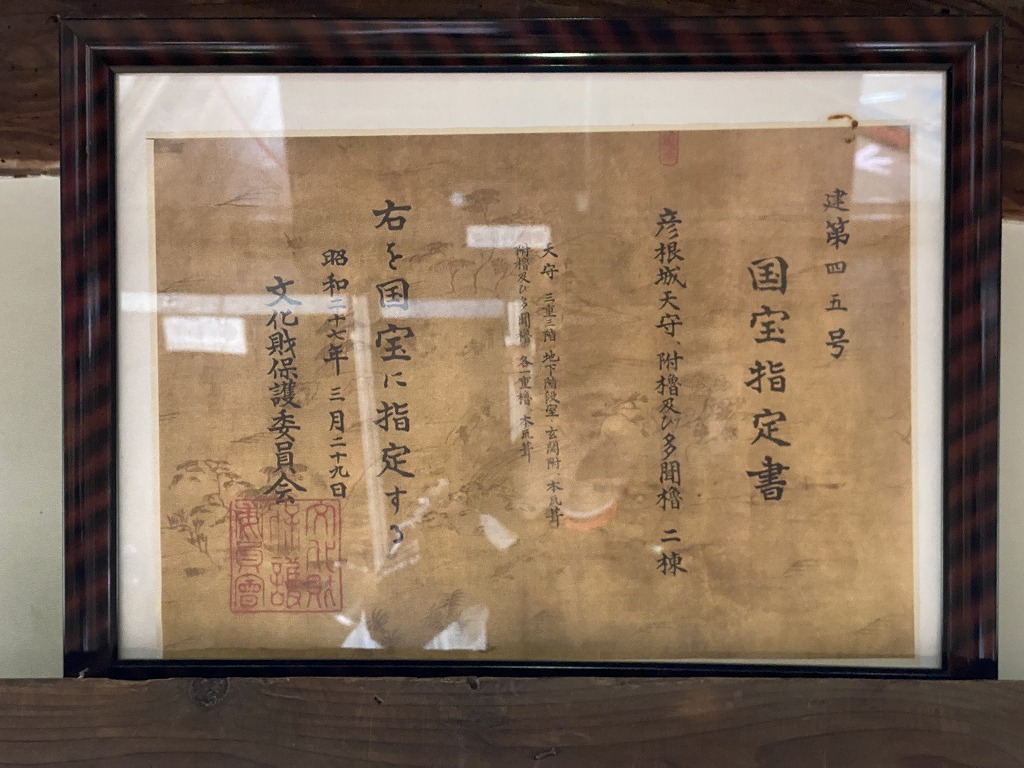 建第四五号
国宝指定書
彦根城天守、附櫓及び多聞櫓 二棟
天守 三重三階 地下階段室 玄関附 本瓦葺
附櫓及び多聞櫓 各一重櫓 本瓦葺
右を国宝に指定する
昭和二十七年 三月二十九日
文化財保護委員会
文化財
保護
委員會